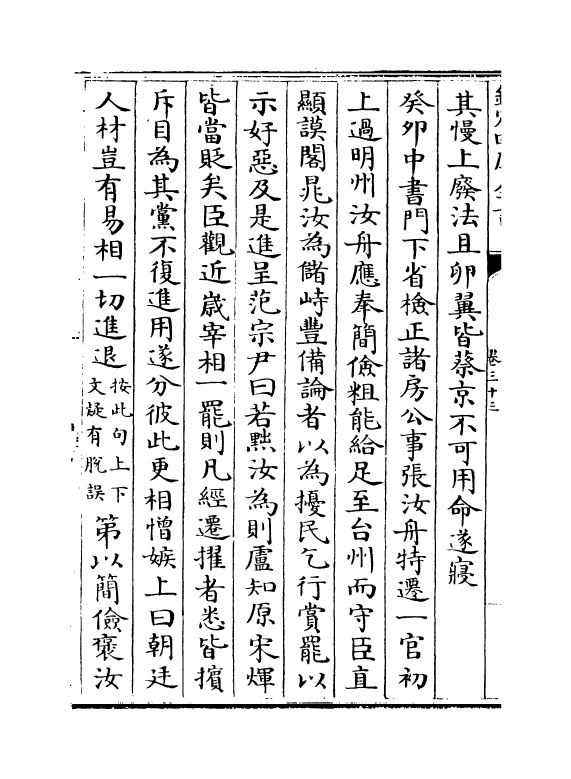 卷三十三
其慢上廢法且卵翼皆蔡京不可用命遂寢
癸卯中書門下省檢正諸房公事張汝舟特遷一官初
上過明州汝舟應奉簡儉粗能給足至台州而守臣直
顯謨閣晁汝為儲峙豐備論者以為擾民乞行賞罷以
示好惡及是進呈范宗尹曰若黜汝為則盧知原宋煇
皆當貶矣臣觀近嵗宰相一罷則凡經遷擢者悉皆擯
斥目為其黨不復進用遂分彼此更相憎嫉上曰朝廷
人材豈有易相一切進退按此句上下文疑有脫誤第以簡儉褒汝